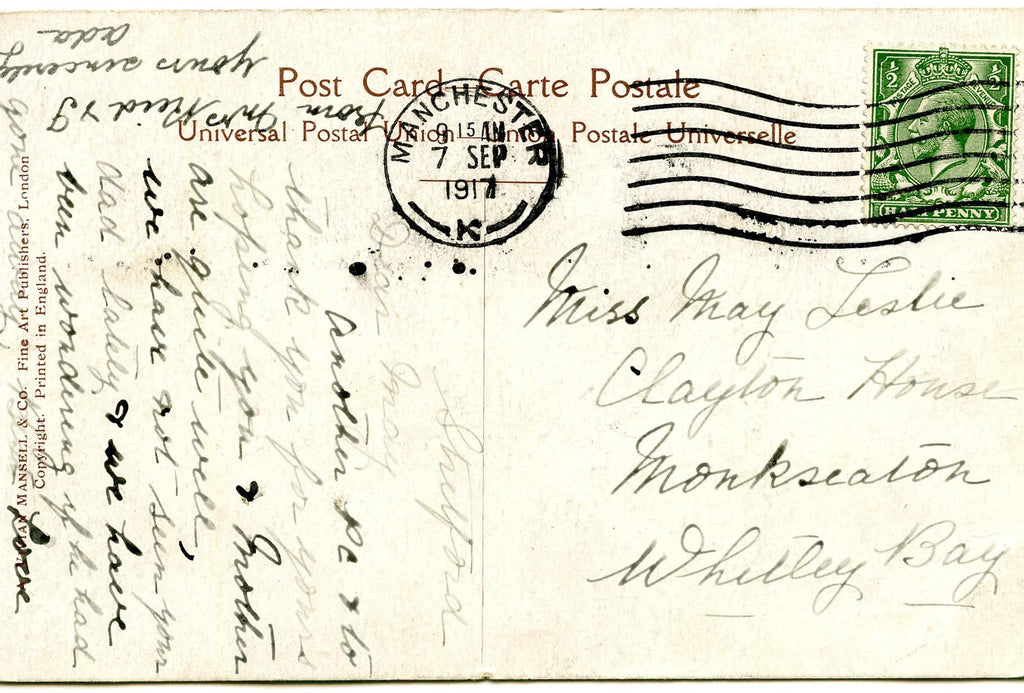 Post Card Carte Postale
Universal Postal Union Union Postale Universelle
MANCHESTER
9 15 AM
7 SEP
1917
K
½ ½
POSTAGE
HALFPENNY
Miss May Leslie
Clayton House
Monkseaton
Whitley Bay
Stretford
Dear May
another Pc & to
thank you for yours
hoping you & Mother
are quite well,
we have not seen your
Dad lately & we have
been wondering if he had
gone away
Love
from Mrs Reid & I
yours sincerely
ada
MANSELL & Co. Fine Art Publishers. London
Copyright. Printed in England.